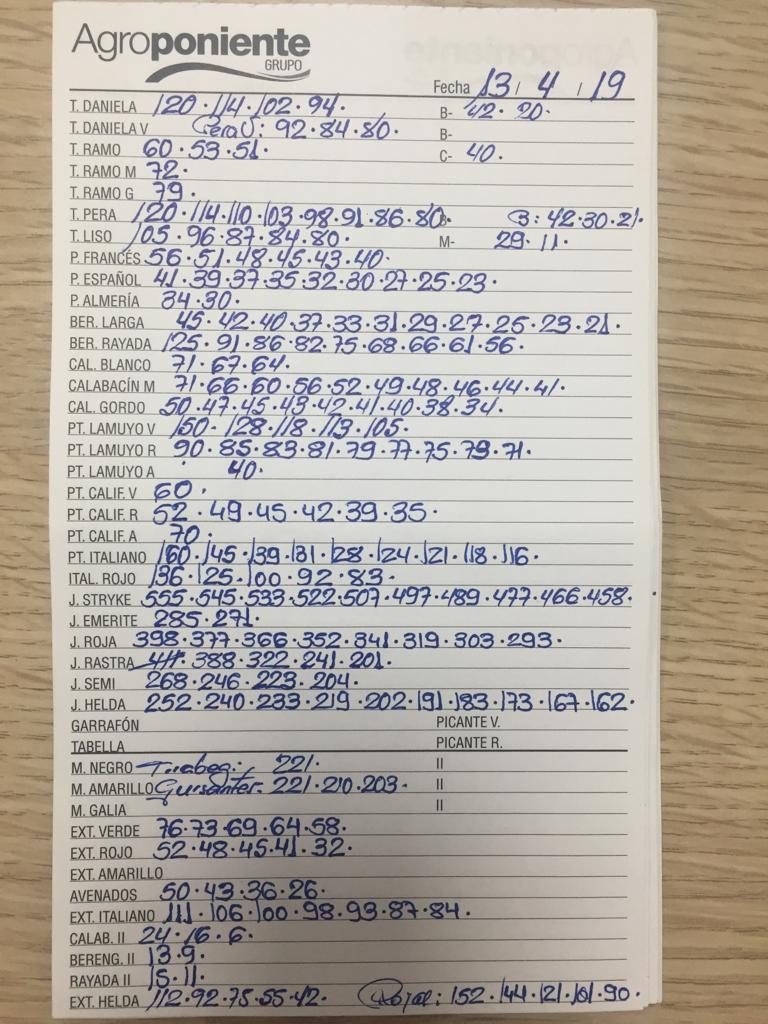 Agroponiente
GRUPO
Fecha 13 / 4 / 19
T. DANIELA 120 · 114 · 102 · 94 · B- 42 · 20 ·
T. DANIELA V 92 · 84 · 80 · B-
T. RAMO 60 · 53 · 51 · C- 40 ·
T. RAMO M 72 ·
T. RAMO G 79 ·
T. PERA 120 · 114 · 110 · 103 · 98 · 91 · 86 · 80 · B: 42 · 30 · 21 ·
T. LISO 105 · 96 · 87 · 84 · 80 · M- 29 · 11 ·
P. FRANCÉS 56 · 51 · 48 · 45 · 43 · 40 ·
P. ESPAÑOL 41 · 39 · 37 · 35 · 32 · 30 · 27 · 25 · 23 ·
P. ALMERÍA 34 · 30 ·
BER. LARGA 45 · 42 · 40 · 37 · 33 · 31 · 29 · 27 · 25 · 23 · 21 ·
BER. RAYADA 125 · 91 · 86 · 82 · 75 · 68 · 66 · 61 · 56 ·
CAL. BLANCO 71 · 67 · 64 ·
CALABACÍN M 71 · 66 · 60 · 56 · 52 · 49 · 48 · 46 · 44 · 41 ·
CAL. GORDO 50 · 47 · 45 · 43 · 42 · 41 · 40 · 38 · 34 ·
PT. LAMUYO V 150 · 128 · 118 · 113 · 105 ·
PT. LAMUYO R 90 · 85 · 83 · 81 · 79 · 77 · 75 · 73 · 71 ·
PT. LAMUYO A 40 ·
PT. CALIF. V 60 ·
PT. CALIF. R 52 · 49 · 45 · 42 · 39 · 35 ·
PT. CALIF. A 70 ·
PT. ITALIANO 160 · 145 · 139 · 131 · 128 · 124 · 121 · 118 · 116 ·
ITAL. ROJO 136 · 125 · 100 · 92 · 83 ·
J. STRYKE 555 · 545 · 533 · 522 · 507 · 497 · 489 · 477 · 466 · 458 ·
J. EMERITE 285 · 271 ·
J. ROJA 398 · 377 · 366 · 352 · 341 · 319 · 303 · 293 ·
J. RASTRA 388 · 322 · 241 · 201 ·
J. SEMI 268 · 246 · 223 · 204 ·
J. HELDA 252 · 240 · 233 · 219 · 202 · 191 · 183 · 173 · 167 · 162 ·
GARRAFÓN PICANTE V.
TABELLA PICANTE R.
M. NEGRO 221 · II
M. AMARILLO Guisantes 221 · 210 · 203 · II
M. GALIA II
EXT. VERDE 76 · 73 · 69 · 64 · 58 ·
EXT. ROJO 52 · 48 · 45 · 41 · 32 ·
EXT. AMARILLO
AVENADOS 50 · 43 · 36 · 26 ·
EXT. ITALIANO 111 · 106 · 100 · 98 · 93 · 87 · 84 ·
CALAB. II 24 · 16 · 6 ·
BERENG. II 13 · 9 ·
RAYADA II 15 · 11 ·
EXT. HELDA 112 · 92 · 75 · 55 · 42 · Roja: 152 · 144 · 121 · 101 · 90 ·